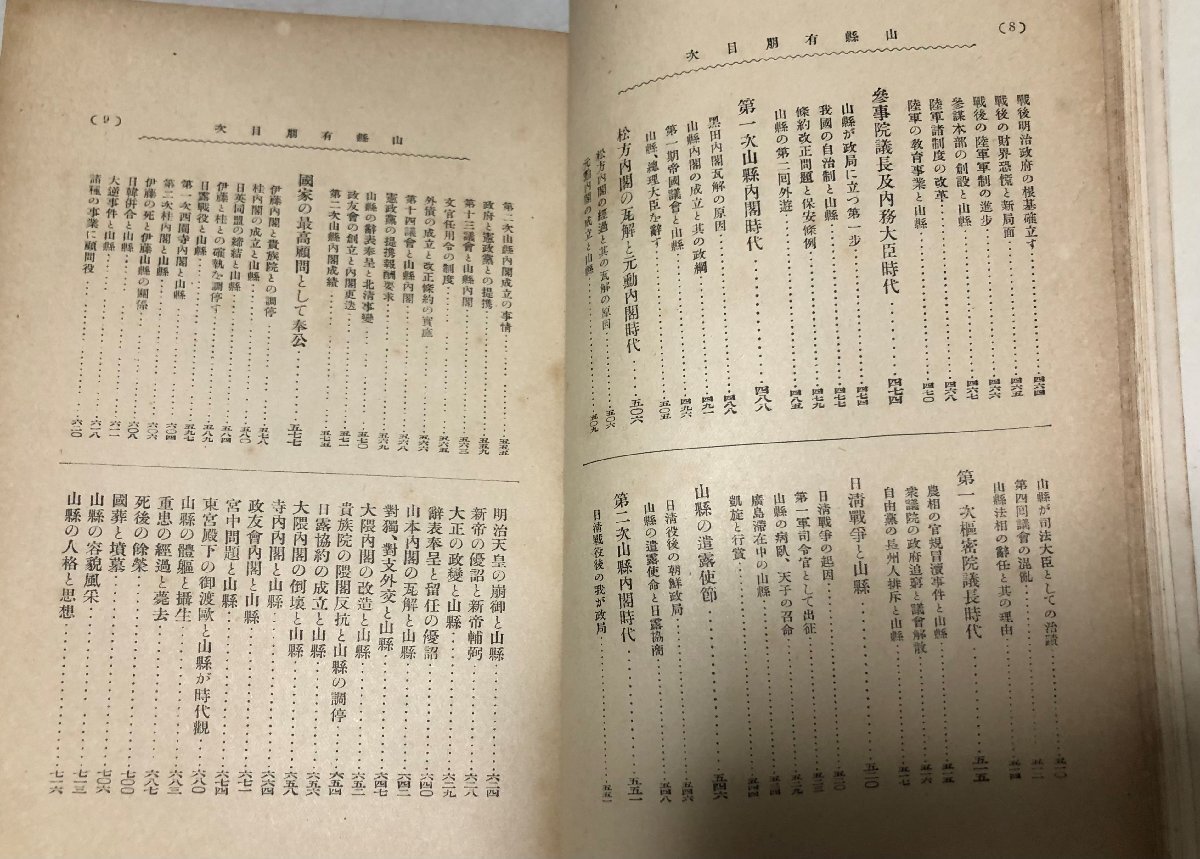 (8)
山縣有朋目次
戰後明治政府の根基確立す……四六四
戰後の財界恐慌と新局面……四六五
戰後の陸軍軍制の進步……四六六
參謀本部の創設と山縣……四六七
陸軍諸制度の改革……四六八
陸軍の教育事業と山縣……四七〇
參事院議長及內務大臣時代……四七四
山縣が政局に立つ第一步……四七四
我國の自治制と山縣……四七七
條約改正問題と保安條例……四七九
山縣の第二回外遊……四八五
第一次山縣內閣時代……四八八
黑田內閣瓦解の原因……四八八
山縣內閣の成立と其の政綱……四九一
第一期帝國議會と山縣……四九六
山縣、總理大臣を辭す……五〇五
松方內閣の瓦解と元勳內閣時代……五〇六
松方內閣の經過と其の瓦解の原因……五〇六
元勳內閣の成立と山縣……五〇九
山縣が司法大臣としての治績……五一〇
第四回議會の混亂……五一二
山縣法相の辭任と其の理由……五一四
第一次樞密院議長時代……五一五
農相の官規冒瀆事件と山縣……五一五
衆議院の政府追窮と議會解散……五一六
自由黨の長州人排斥と山縣……五一七
日淸戰爭と山縣……五二〇
日淸戰爭の起因……五二〇
第一軍司令官として出征
山縣の病臥、天子の召命
廣島滯在中の山縣
凱旋と行賞
山縣の遣露使節……五四六
日淸役後の朝鮮政局……五四六
山縣の遣露使命と日露協商……五四八
第二次山縣內閣時代……五五一
日淸戰役後の我が政局……五五一
(9)
山縣有朋目次
第二次山縣內閣成立の事情……五五五
政府と憲政黨との提携……五五九
第十三議會と山縣內閣……五六三
文官任用令の制度……五六五
外債の成立と改正條約の實施……五六六
第十四議會と山縣內閣……五六八
憲政黨の提携報酬要求……五六九
山縣の辭表奉呈と北淸事變……五七〇
政友會の創立と內閣更迭……五七一
第二次山縣內閣成績……五七五
國家の最高顧問として奉公……五七七
伊藤內閣と貴族院との調停……五七八
桂內閣の成立と山縣……五八〇
日英同盟の締結と山縣……五八四
伊藤と桂との確執を調停す……五八九
日露戰役と山縣……五九七
第一次西園寺內閣と山縣……六〇四
第二次桂內閣と山縣……六〇六
伊藤の死と伊藤山縣の關係……六〇八
日韓併合と山縣……六一一
大逆事件と山縣……六一八
諸種の事業に顧問役……六二〇
明治天皇の崩御と山縣……六二四
新帝の優詔と新帝輔弼……六二九
大正の政變と山縣……六四〇
辭表奉呈と留任の優詔……六四二
山本內閣の瓦解と山縣……六四七
對獨、對支外交と山縣……六五四
大隈內閣の改造と山縣……六五六
貴族院の隈閣反抗と山縣の調停……六五八
日露協約の成立と山縣……六六四
大隈內閣の倒壞と山縣……六七一
寺內內閣と山縣……六七四
政友會內閣と山縣
宮中問題と山縣
東宮殿下の御渡歐と山縣が時代觀……六八〇
山縣の體軀と攝生……六八三
重患の經過と薨去……六八七
死後の餘榮……七〇〇
國葬と墳墓……七〇六
山縣の容貌風采……七一三
山縣の人格と思想……七一六